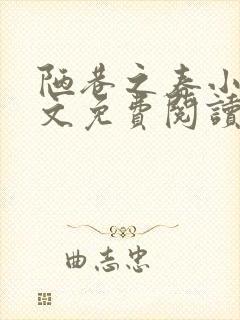 陋巷之春小
文免費閱讀
曲志忠